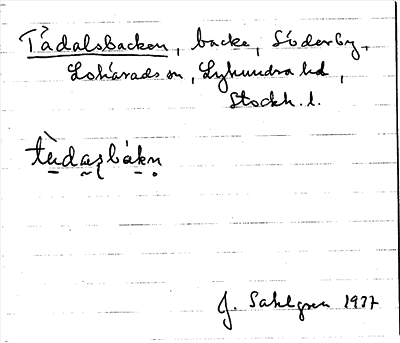 Tådalsbacken, backe, Söderby-
Lohärads sn, Lyhundra hd,
Stockh. l.
tùdaʂbákn̥
J. Sahlgren 1937